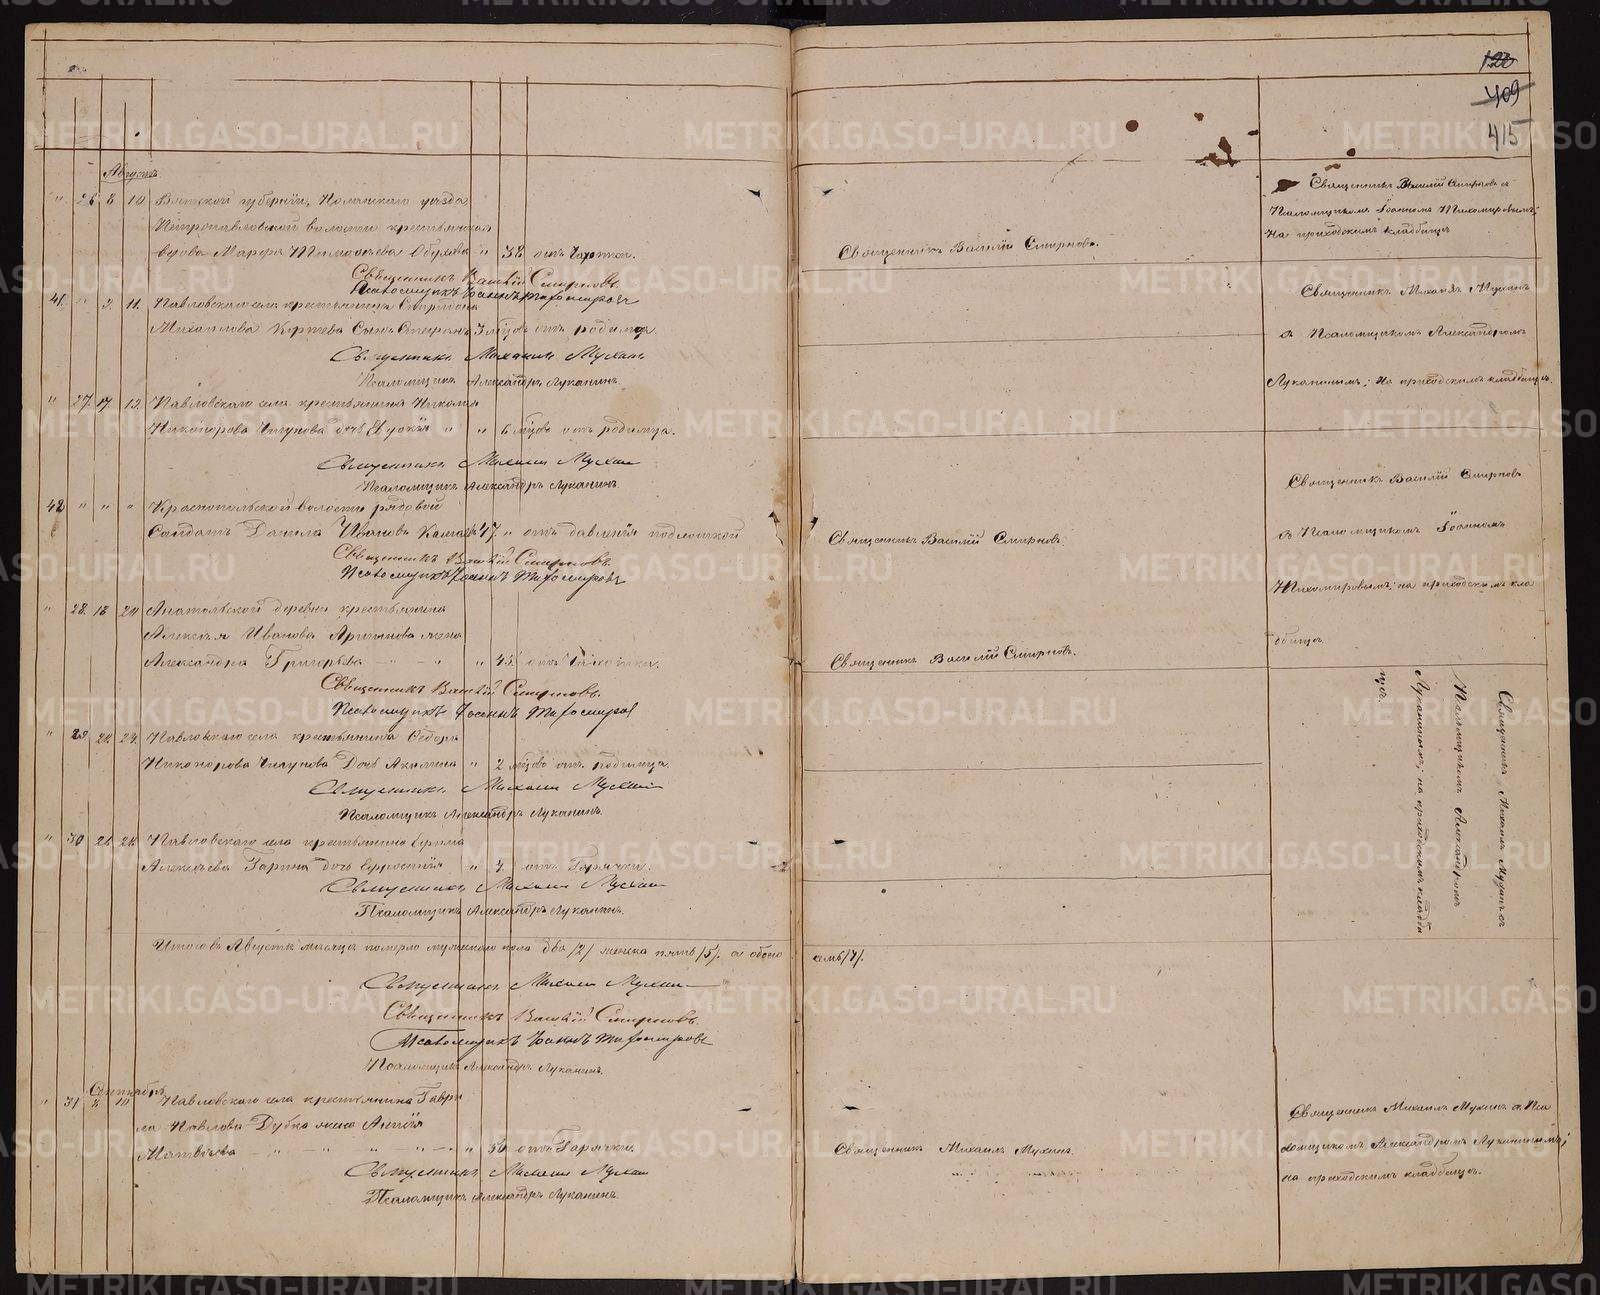 120
409
415
Августъ
" 26 8 10 Вятской губерніи, уѣзда
Петропавловской волости крестьянская
вдова Марфа Тимофѣева " 38 отъ чахотки.
Священникъ Василій Смирновъ.
Псаломщикъ Іоаннъ Тихомировъ
Священникъ Василій Смирновъ.
Священникъ Василій Смирновъ съ
Псаломщикомъ Іоанномъ Тихомировымъ;
на приходскомъ кладбищѣ
41. " 9. 11. Павловскаго села крестьянина
Михаилова сынъ Степанъ 3 мѣс. отъ родимца.
Священникъ Михаилъ Мухинъ
Псаломщикъ Александръ Луканинъ.
Священникъ Михаилъ Мухинъ
съ Псаломщикомъ Александромъ
Луканинымъ; на приходскомъ кладбищѣ.
" 27. 17. 19. Павловскаго села крестьянина Николая
Никанорова дочь " " 6 мѣс. отъ родимца.
Священникъ Михаилъ Мухинъ
Псаломщикъ Александръ Луканинъ.
42 " " " Краснопольской волости рядовой
Солдатъ Данила Ивановъ 47. " отъ давленія
Священникъ Василій Смирновъ.
Псаломщикъ Іоаннъ Тихомировъ
Священникъ Василій Смирновъ.
Священникъ Василій Смирновъ
съ Псаломщикомъ Іоанномъ
Тихомировымъ; на приходскомъ кла
дбищѣ.
" 28. 18 20 Анатольской деревни крестьянина
Алексѣя Иванова жена
Александра Григорьева " 45. отъ чахотки.
Священникъ Василій Смирновъ.
Псаломщикъ Іоаннъ Тихомировъ
Священникъ Василій Смирновъ.
" 29 22 24. Павловскаго села крестьянина Ѳедора
Никонорова дочь Акилина " 2 мѣс. отъ родимца.
Священникъ Михаилъ Мухинъ
Псаломщикъ Александръ Луканинъ.
Священникъ Михаилъ Мухинъ съ
Псаломщикомъ Александромъ
Луканинымъ; на приходскомъ кладби
щѣ.
" 30 Павловскаго села крестьянина
Алексѣева Гарина дочь " 4. отъ Горячки.
Священникъ Михаилъ Мухинъ
Псаломщикъ Александръ Луканинъ.
Итого въ Августѣ мѣсяцѣ померло мужскаго пола два /2/ женска пять /5/. а обоего
семь /7/.
Священникъ Михаилъ Мухинъ
Священникъ Василій Смирновъ.
Псаломщикъ Іоаннъ Тихомировъ
Псаломщикъ Александръ Луканинъ.
Сентября
" 31. 8 10 Павловскаго села крестьянина Гаврі
ла Павлова жена
Матвѣева " 50 отъ Горячки.
Священникъ Михаилъ Мухинъ
Псаломщикъ Александръ Луканинъ.
Священникъ Михаилъ Мухинъ.
Священникъ Михаилъ Мухинъ съ Пса
ломщикомъ Александромъ Луканинымъ;
на приходскомъ кладбищѣ.
METRIKI.GASO-URAL.RU